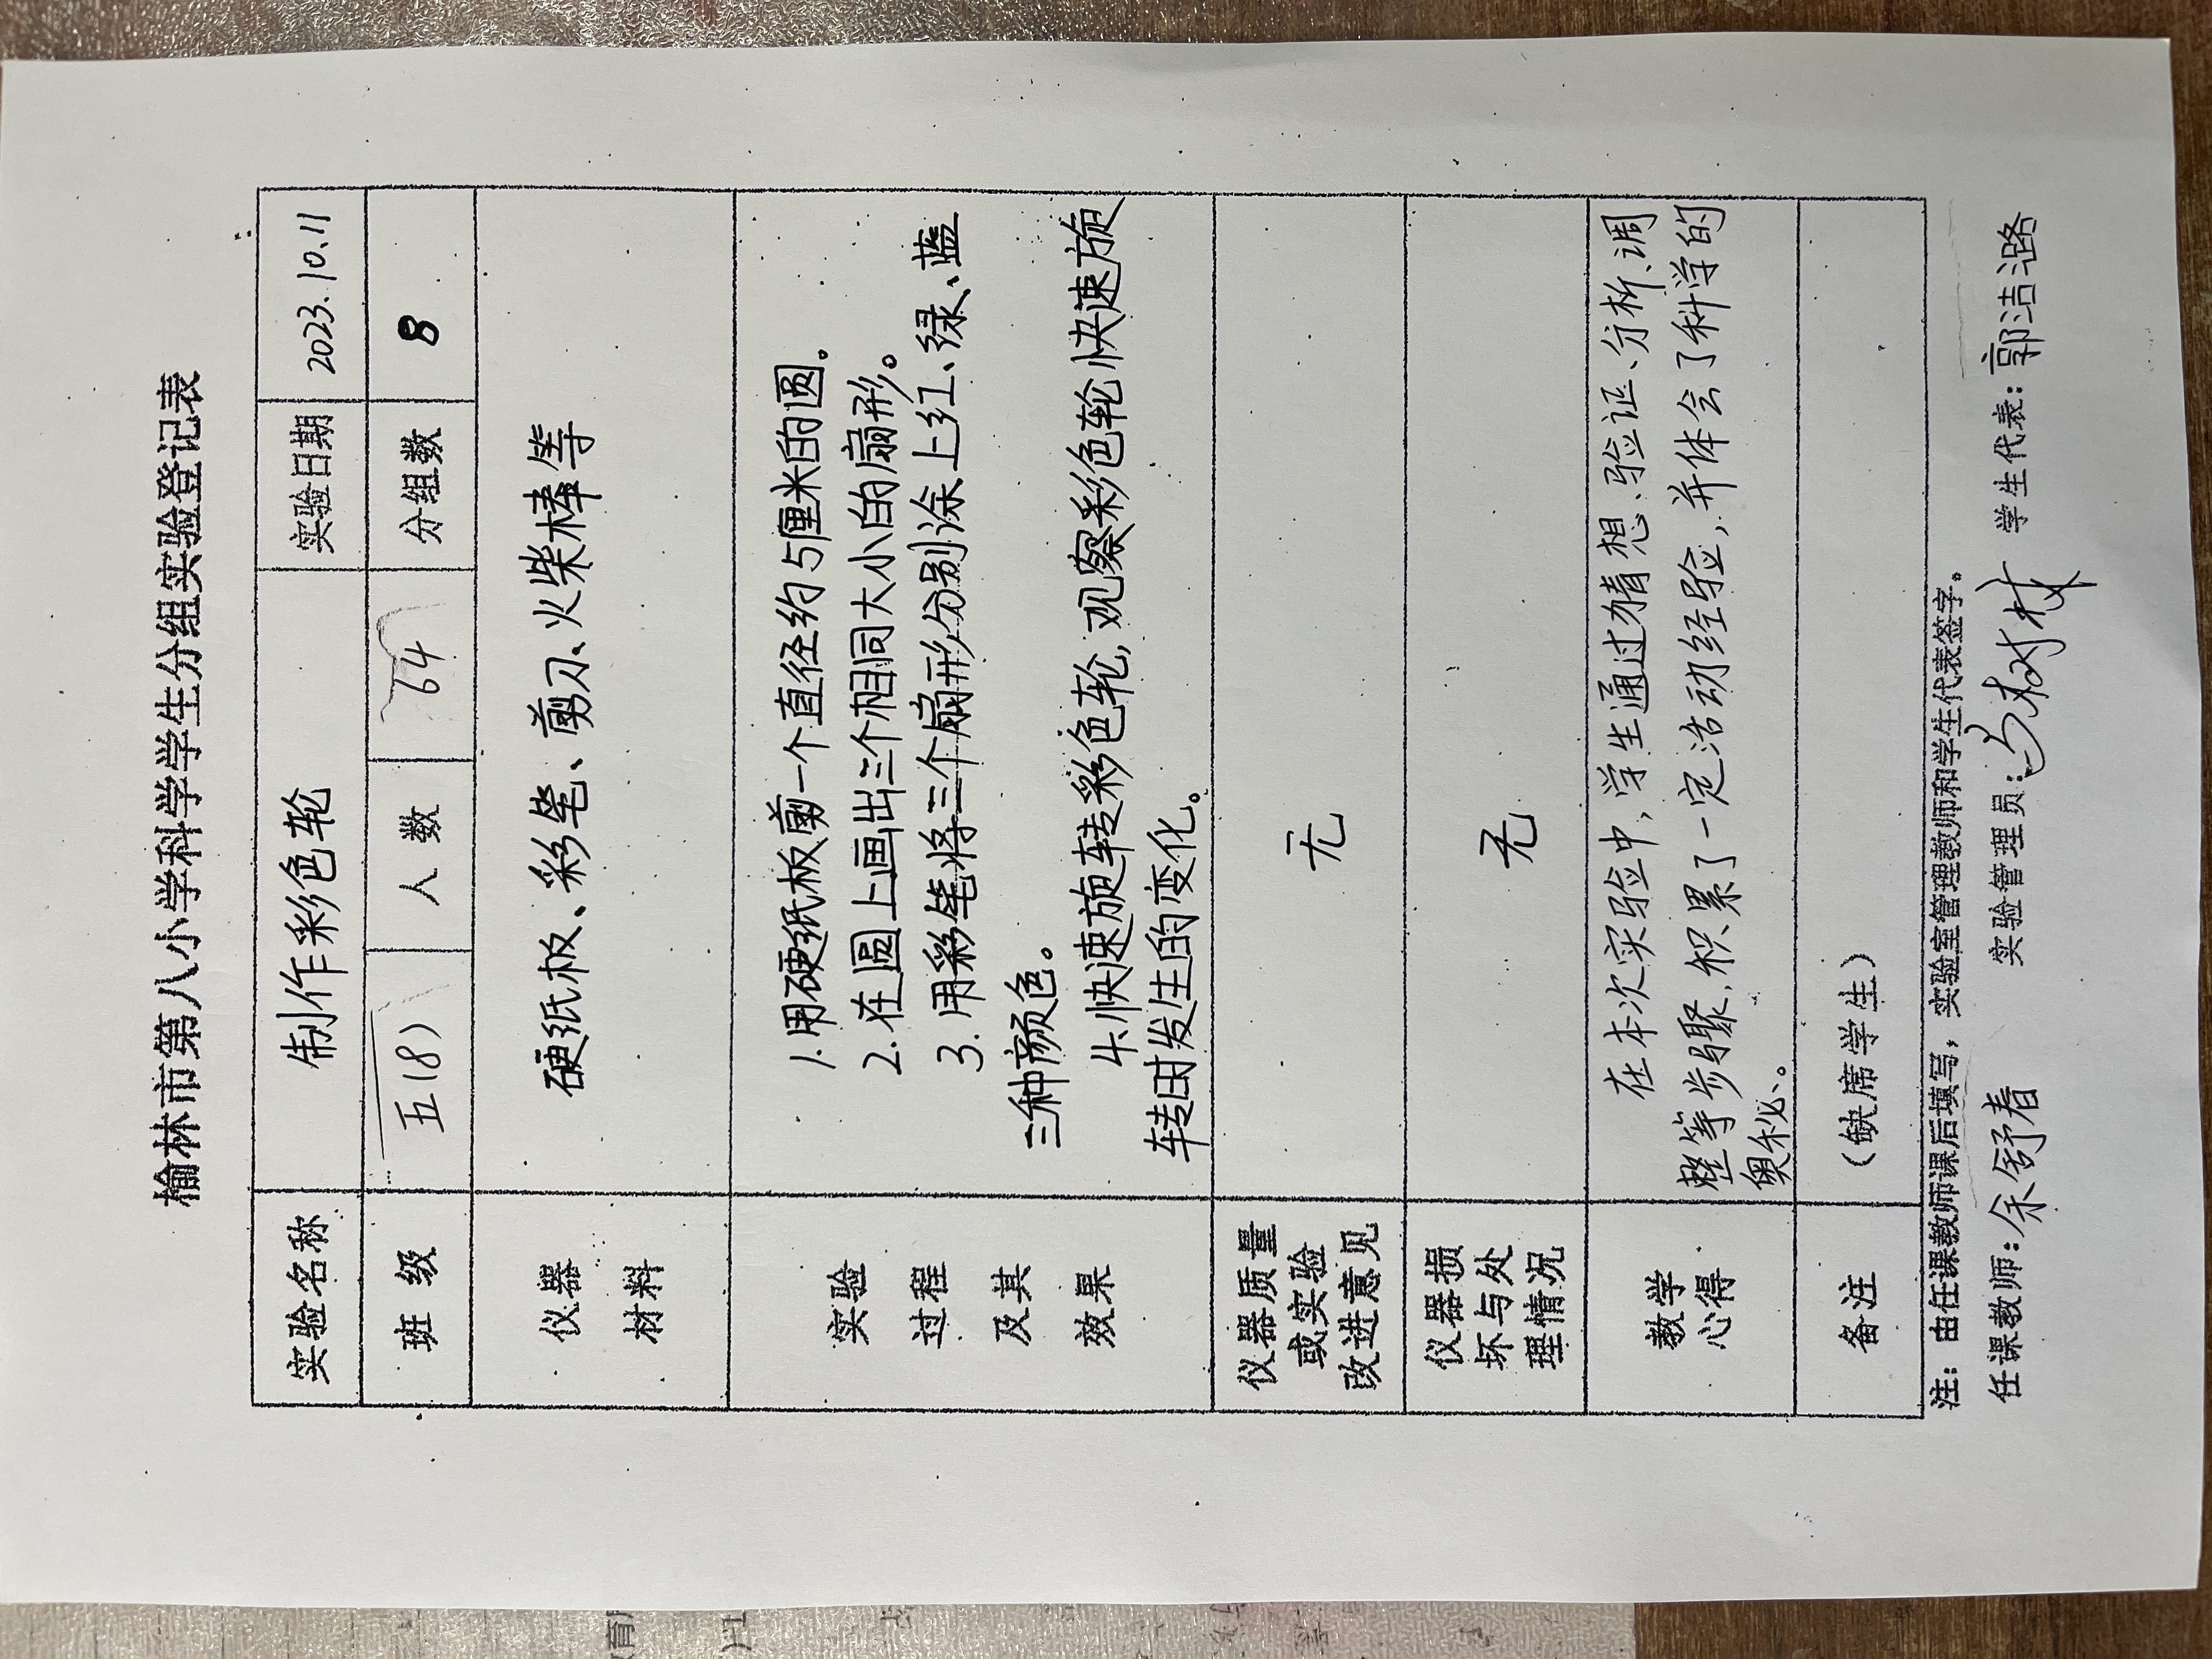 榆林市第八小学科学学生分组实验登记表
实验名称 制作彩色轮 实验日期 2023.10.11
班 级 五(8) 人 数 64 分组数 8
仪器
材料
硬纸板、彩笔、剪刀、火柴棒等
实验
过程
及其
效果
1.用硬纸板剪一个直径约5厘米的圆。
2.在圆上画出三个相同大小的扇形。
3.用彩笔将三个扇形分别涂上红、绿、蓝
三种颜色。
4.快速旋转彩色轮,观察彩色轮快速旋
转时发生的变化。
仪器质量
或实验
改进意见
无
仪器损
坏与处
理情况
无
教学
心得
在本次实验中,学生通过猜想、验证、分析、调
整等步骤,积累了一定活动经验,并体会了科学的
奥秘。
备注 (缺席学生)
注:由任课教师课后填写,实验室管理教师和学生代表签字。
任课教师:余舒春 实验管理员: 树林 学生代表:郭洁璐